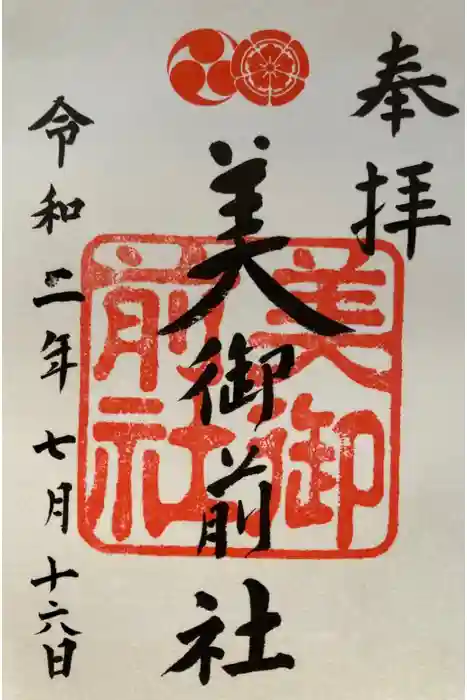 奉拝
美御前社
美御
前社
令和二年七月十六日